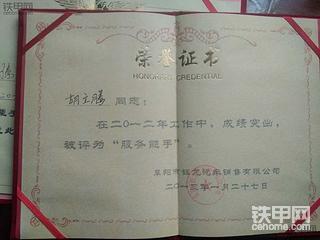 铁甲网
荣誉证书
HONORARY CREDENTIAL
胡玉腾 同志：
在二〇一二年工作中，成绩突出，
被评为“服务能手”。
阜阳市 汽车销售有限公司
二〇一三年一月二十七日
铁甲网
cehome.com